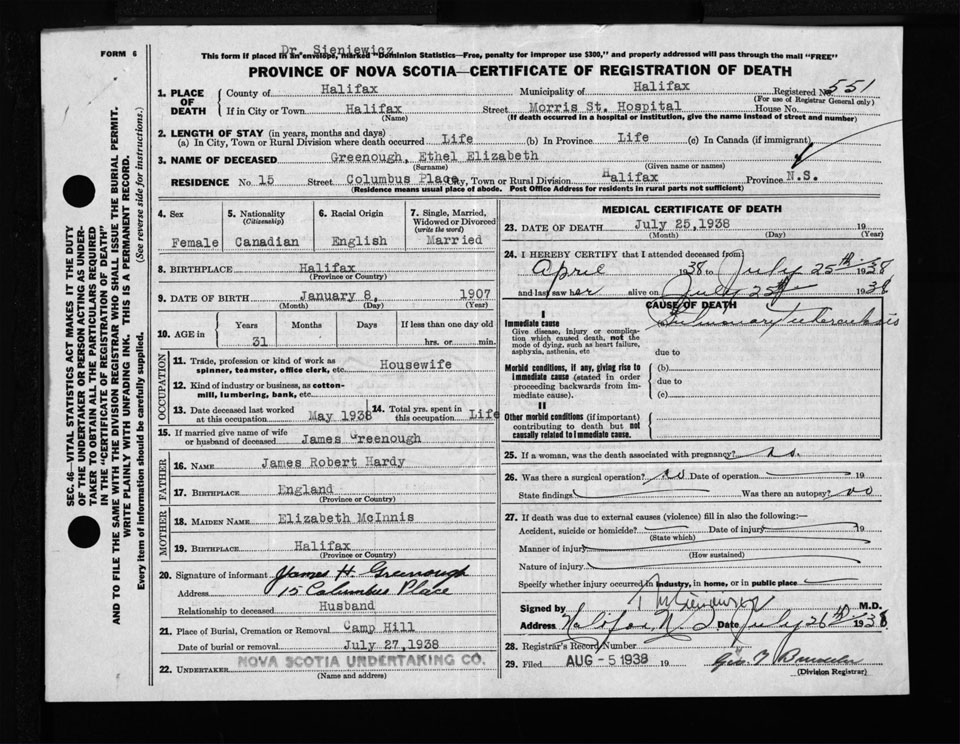 FORM 6
Dr. Sieniewicz
This form if placed in an envelope, marked "Dominion Statistics—Free, penalty for improper use $300," and properly addressed will pass through the mail "FREE"
PROVINCE OF NOVA SCOTIA—CERTIFICATE OF REGISTRATION OF DEATH
1. PLACE OF DEATH County of Halifax Municipality of Halifax Registered No. 551
(For use of Registrar General only)
If in City or Town Halifax Street Morris St. Hospital House No.
(Name) (If death occurred in a hospital or institution, give the name instead of street and number)
2. LENGTH OF STAY (in years, months and days)
(a) In City, Town or Rural Division where death occurred Life (b) In Province Life (c) In Canada (if immigrant)
3. NAME OF DECEASED Greenough, Ethel Elizabeth
(Surname) (Given name or names)
RESIDENCE No. 15 Street Columbus Place City, Town or Rural Division Halifax Province N.S.
(Residence means usual place of abode. Post Office Address for residents in rural parts not sufficient)
SEC. 46—VITAL STATISTICS ACT MAKES IT THE DUTY
OF THE UNDERTAKER OR PERSON ACTING AS UNDER-
TAKER TO OBTAIN ALL THE PARTICULARS REQUIRED
IN THE "CERTIFICATE OF REGISTRATION OF DEATH"
AND TO FILE THE SAME WITH THE DIVISION REGISTRAR WHO SHALL ISSUE THE BURIAL PERMIT.
WRITE PLAINLY WITH UNFADING INK. THIS IS A PERMANENT RECORD.
Every item of information should be carefully supplied. (See reverse side for instructions.)
4. Sex
Female
5. Nationality
(Citizenship)
Canadian
6. Racial Origin
English
7. Single, Married, Widowed or Divorced
(write the word)
Married
8. BIRTHPLACE Halifax
(Province or Country)
9. DATE OF BIRTH January 8, 1907
(Month) (Day) (Year)
10. AGE in Years Months Days If less than one day old
31 hrs. or min.
OCCUPATION
11. Trade, profession or kind of work as spinner, teamster, office clerk, etc. Housewife
12. Kind of industry or business, as cotton-mill, lumbering, bank, etc.
13. Date deceased last worked at this occupation May 1938
14. Total yrs. spent in this occupation Life
15. If married give name of wife or husband of deceased James Greenough
FATHER
16. NAME James Robert Hardy
17. BIRTHPLACE England
(Province or Country)
MOTHER
18. MAIDEN NAME Elizabeth McInnis
19. BIRTHPLACE Halifax
(Province or Country)
20. Signature of informant James H. Greenough
Address 15 Columbus Place
Relationship to deceased Husband
21. Place of Burial, Cremation or Removal Camp Hill
Date of burial or removal July 27, 1938
22. UNDERTAKER NOVA SCOTIA UNDERTAKING CO.
(Name and address)
MEDICAL CERTIFICATE OF DEATH
23. DATE OF DEATH July 25, 1938 19
(Month) (Day) (Year)
24. I HEREBY CERTIFY that I attended deceased from:
April 1938 to July 25th 1938
and last saw her alive on July 25th 1938
CAUSE OF DEATH
I
Immediate cause
Give disease, injury or complica-
tion which caused death, not the
mode of dying, such as heart failure,
asphyxia, asthenia, etc
Pulmonary Tuberculosis
due to
Morbid conditions, if any, giving rise to
immediate cause (stated in order
proceeding backwards from im-
mediate cause).
(b)
due to
(c)
II
Other morbid conditions (if important)
contributing to death but not
causally related to immediate cause.
25. If a woman, was the death associated with pregnancy? no.
26. Was there a surgical operation? no Date of operation 19
State findings Was there an autopsy? no
27. If death was due to external causes (violence) fill in also the following:—
Accident, suicide or homicide? Date of injury 19
(State which)
Manner of injury
(How sustained)
Nature of injury
Specify whether injury occurred in industry, in home, or in public place
Signed by Sieniewicz M.D.
Address Halifax, N.S. Date July 26th 1938
28. Registrar's Record Number
29. Filed AUG - 5 1938 19
(Division Registrar)